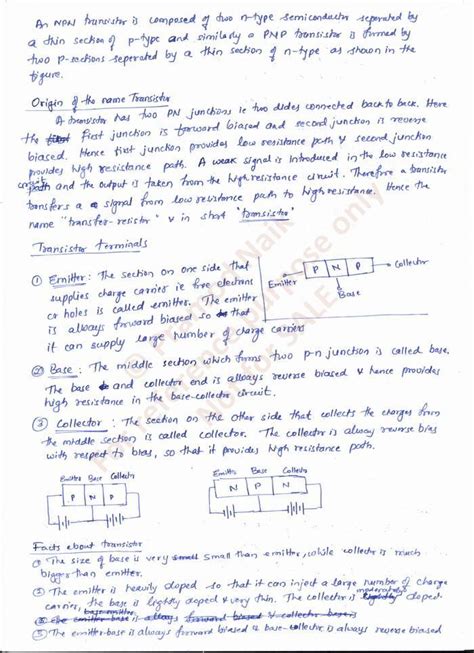 An NPN transistor is composed of two n-type semiconductor seperated by
a thin section of p-type and similarly a PNP transistor is formed by
two p-sections seperated by a thin section of n-type as shown in the
figure.
Origin of the name Transistor
A transistor has two PN junctions ie two diodes connected back to back. Here
the first junction is forward biased and second junction is reverse
biased. Hence first junction provides low resistance path & second junction
provides high resistance path. A weak signal is Introduced in the low resistance
circuit and the output is taken from the high resistance circuit. Therefore a transistor
transfers a signal from low resistance path to high resistance. Hence the
name "transfer-resistor" & in short "transistor"
Transistor Terminals
① Emitter : The section on one side that
supplies charge carrier ie free electrons
or holes is called emitter. The emitter
is allways forward biased so that
it can supply large number of charge carriers
Emitter P N P Collector
Base
② Base : The middle section which forms two p-n junction is called base.
The base and collector end is allways reverse biased & hence provides
high resistance in the base-collector circuit.
③ Collector : The section on the other side that collects the charges from
the middle section is called collector. The collector is always reverse bias
with respect to bias, so that it provides high resistance path.
Emitter Base Collector
P N P
Emitter Base Collector
N P N
Facts about transistor
① The size of base is very small than emitter, while collector is much
bigger than emitter.
② The emitter is heavily doped so that it can inject a large number of charge
carrier, the base is lightly doped & very thin. The collector is moderately doped
③ The emitter-base is always forward biased & base-collector is always reverse biased
Not for SALE